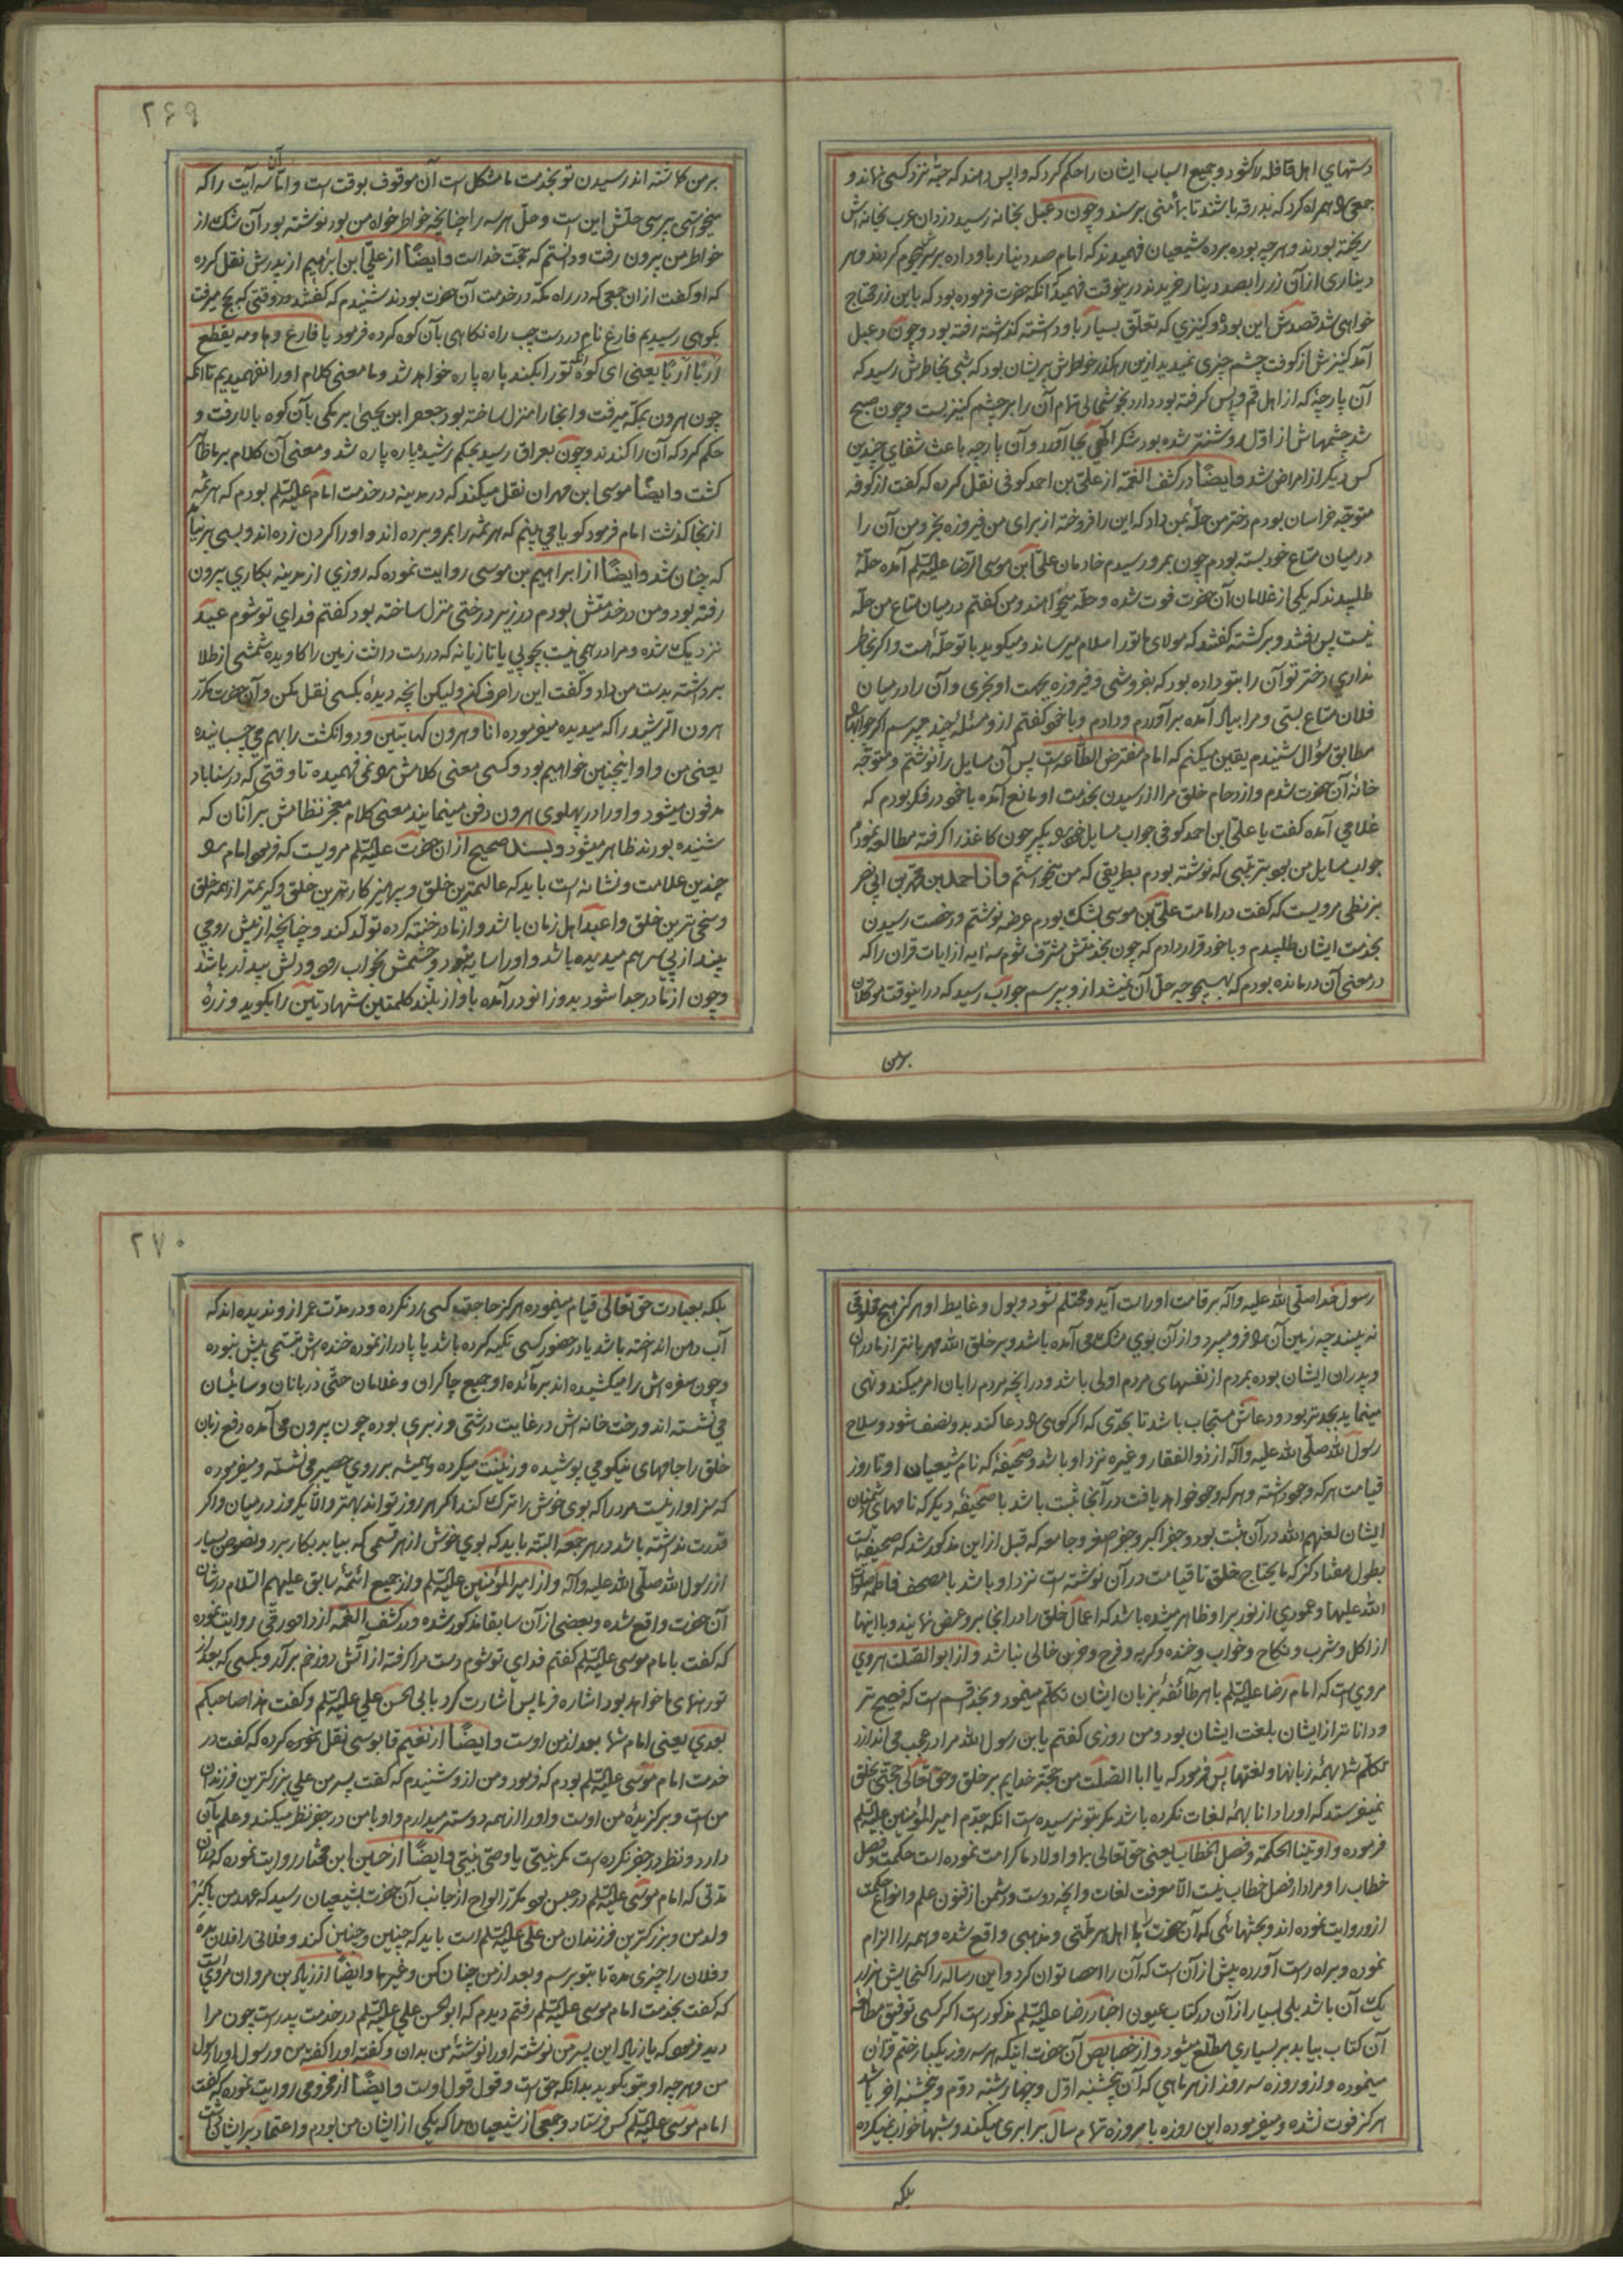 دستهای اهل قافله را کشود و جمیع اسباب ایشان را حکم کرد که واپس دهند که حبهٔ نزد کسی نماند و
جمعی را همراه کرد که بدرقه باشند تا بمأمنی برسند و چون دعبل بخانه رسید دزدان عرب بخانه اش
ریخته بودند و هر چه بوده برده شیعیان فهمیدند که امام صد دینار باو داده بر سرش هجوم کردند و هر
دیناری از آن زر را بصد دینار خریدند درینوقت فهمید آنکه حضرت فرموده بود که باین زر محتاج
خواهی شد قصدش این بوده و کنیزی که تعلق بسیار باو داشته گذاشته رفته بود و چون دعبل
آمد کنیزش از کوفت چشم چیزی نمیدید ازین رهگذر خواطرش پریشان بود که شبی بخاطرش رسید که
آن پارچهٔ که از اهل قم واپس گرفته بود دارد بخوشحالی تمام آن را بر چشم کنیز بست و چون صبح
شد چشمهاش از اول روشنتر شده بود شکر الهی بجا آورد و آن پارچه باعث شفای چندین
کس دیگر از امراض شد وایضًا در کشف الغمه از علی بن احمد کوفی نقل کرده که گفت از کوفه
متوجه خراسان بودم دختر من حلهٔ بمن داد که این را فروخته از برای من فیروزه بخر و من آن را
در میان متاع خود بسته بودم چون بمرو رسیدم خادمان علی ابن موسی الرضا علیه السلم آمده حلهٔ
طلبیدند که یکی از غلامان آن حضرت فوت شده و حله میخواهند و من گفتم در میان متاع من حله
نیست پس رفتند و برگشته گفتند که مولای ما تو را سلام میرساند و میگوید با تو حلهٔ هست و اگر بخاطر
نداری دختر تو آن را بتو داده بود که بفروشی و فیروزه بجهت او بخری و آن را در میان
فلان متاع بستی و مرا بیاد آمده برآوردم و دادم و با خود گفتم ازو مسئلهٔ چند میپرسم اگر جوابها
مطابق سؤال شنیدم یقین میکنم که امام مفترض الطاعه است پس آن مسایل را نوشتم و متوجه
خانهٔ آن حضرت شدم و ازدحام خلق مرا از رسیدن بخدمت او مانع آمده با خود در فکر بودم که
غلامی آمده گفت یا علی ابن احمد کوفی جواب مسایل خود را بگیر چون کاغذ را گرفته مطالعه نمودم
جواب مسایل من بود بترتیبی که نوشته بودم بطریقی که من میخواستم و از احمد بن محمد بن ابی نصر
بزنطی مرویست که گفت در امامت علی بن موسی بشک بودم عرضه نوشتم و رخصت رسیدن
بخدمت ایشان طلبیدم و با خود قرار دادم که چون بخدمتش مشرف شوم سه ایه از ایات قران را که
در معنی آن درمانده بودم که بهیچوجه حل آن نمیشد ازو بپرسم جواب رسید که در اینوقت موکلان
برمن
۲۶۹
بر من گماشته اند رسیدن تو بخدمت ما مشکل است آن موقوف بوقت است و اما آن سه آیت را که
میخواستی بپرسی حلش این است و حل هر سه را چنانچه خواطر خواه من بود نوشته بود آن شک از
خواطر من بیرون رفت و دانستم که حجت خداست وایضًا از علی ابن ابراهیم از پدرش نقل کرده
که او گفت از آن جمعی که در راه مکه در خدمت آن حضرت بودند شنیدم که گفتند در وقتی که بحج میرفت
بکوهی رسیدیم فارغ نام در دست چپ راه نگاهی بآن کوه کرده فرمود یا فارغ و هادمه یقطع
اربًا اربًا یعنی ای کوه آنکه تو را بکند پاره پاره خواهد شد و ما معنی کلام او را نفهمیدیم تا آنکه
چون هرون بمکه میرفت و انجا را منزل ساخته بود جعفر ابن یحیی برمکی بآن کوه بالا رفت و
حکم کرد که آن را کندند و چون بعراق رسید بحکم رشید پاره پاره شد و معنی آن کلام بر ما ظاهر
گشت وایضًا موسی ابن مهران نقل میکند که در مدینه در خدمت امام علیه السلم بودم که هرثمه
از انجا گذشت امام فرمود گویا می بینم که هرثمه را بمرو برده اند و او را گردن زده اند و بسی بر نیامد
که چنان شد وایضًا از ابراهیم بن موسی روایت نموده که روزی از مدینه بکاری بیرون
رفته بود و من در خدمتش بودم در زیر درختی منزل ساخته بود گفتم فدای تو شوم عید
نزدیک شده و مرا درهمی نیست بچوبی یا تازیانه که در دست داشت زمین را کاویده شمشی از طلا
برداشته بدست من داد و گفت این را صرف کن ولیکن انچه دیدهٔ بکسی نقل مکن و آن حضرت مکرر
هرون الرشید را که میدیده میفرموده انا و هرون کهاتین و دو انگشت را بهم می چسبانیده
یعنی من و او اینچنین خواهیم بود و کسی معنی کلامش را نمی فهمیده تا وقتی که در سناباد
مدفون میشود و او را در پهلوی هرون دفن مینمایند معنی کلام معجز نظامش بر آنان که
شنیده بودند ظاهر میشود و بسند صحیح از آن حضرت علیه السلم مرویست که فرمود امام را
چندین علامت و نشانه است باید که عالمترین خلق و پرهیزکارترین خلق و کریمتر از همه خلق
و سخی ترین خلق و اعبد اهل زمان باشد و از مادر ختنه کرده تولد کند و چنانچه از پیش روی
بیند از پی سر هم میدیده باشد و او را سایه نبود و چشمش بخواب رود و دلش بیدار باشد
و چون از مادر جدا شود بدو زانو درآمده باواز بلند کلمتین شهادتین را بگوید و زرهٔ
رسول خدا صلی الله علیه واله بر قامت او راست آید و محتلم نشود و بول و غایط او هرگز هیچ مخلوقی
نه بیند چه زمین آن را فرو میبرد و از آن بوی مشک می آمده باشد و بر خلق الله مهربانتر از مادران
و پدران ایشان بوده بمردم از نفسهای مردم اولی باشد و در انچه مردم را بان امر میکند و نهی
مینماید بجدتر بود و دعاش مستجاب باشد تا بحدی که اگر کوهی را دعا کند بدو نصف شود و سلاح
رسول الله صلی الله علیه واله از ذوالفقار و غیره نزد او باشد و صحیفهٔ که نام شیعیان او تا روز
قیامت هر که وجود داشته و هر که وجود خواهد یافت در آنجا ثبت باشد با صحیفهٔ دیگر که نامهای دشمنان
ایشان لعنهم الله در آن ثبت بود و جفر اکبر و جفر اصغر و جامعه که قبل از این مذکور شد که صحیفه ایست
بطول هفتاد گز که ما یحتاج خلق تا قیامت در آن نوشته است نزد او باشد با مصحف فاطمه صلوات
الله علیها و عمودی از نور بر او ظاهر میشده باشد که اعمال خلق را در انجا برو عرض نمایند و با اینها
از اکل و شرب و نکاح و خواب و خنده و گریه و فرح و حزن خالی نباشد و از ابوالصلت هروی
مرویست که امام رضا علیه السلم با هر طائفهٔ بزبان ایشان تکلم مینمود و بخدا قسم است که فصیح تر
و داناتر از ایشان بلغت ایشان بود و من روزی گفتم یابن رسول الله مرا در عجب می اندازد
تکلم شما بهمه زبانها و لغتها پس فرمود که یا اباالصلت من حجة خدایم بر خلق و حق تعالی حجتی بخلق
نمیفرستد که او را دانا بهمه لغات نکرده باشد مگر بتو نرسیده است انکه جدم امیرالمؤمنین علیه السلم
فرموده و اوتینا الحکمة و فصل الخطاب یعنی حق تعالی بما و اولاد ما کرامت نموده است حکمت و فصل
خطاب را و مراد از فصل خطاب نیست الا معرفت لغات و انچه دوست و دشمن از فنون علم و انواع حکمت
ازو روایت نموده اند و بحثهائی که آن حضرت را با اهل هر ملتی و مذهبی واقع شده و همه را الزام
نموده و براه راست آورده بیش از آن است که آن را احصا توان کرد و این رساله را گنجایش هزار
یک آن باشد بلی بسیار از آن در کتاب عیون اخبار رضا علیه السلم مذکور است اگر کسی توفیق مطالعه
آن کتاب بیابد بر بسیاری مطلع میشود و از خصایص آن حضرت اینکه هر سه روز یکبار ختم قرآن
مینموده و ازو روزه سه روز از هر ماهی که آن پنجشنبه اول و چهارشنبه دوم و پنجشنبه اخر باشد
هرگز فوت نشده و میفرموده این روزه با روزه تمام سال برابری میکند و شبها خواب نمیکرده
بلکه
۲۷۰
بلکه بعبادت حق تعالی قیام مینموده هرگز حاجت کسی رد نکرده و در مدت عمر ازو ندیده اند که
آب دهن انداخته باشد یا در حضور کسی تکیه کرده باشد یا پا دراز نموده خنده اش تبسمی بیش نبوده
و چون سفره اش را میکشیده اند بر مائده او جمیع چاکران و غلامان حتی دربانان و سائیسان
می نشسته اند و رخت خانه اش در غایت درشتی و زبری بوده چون بیرون می آمده رفع زبان
خلق را جامهای نیکو می پوشیده و زینت میکرده و همیشه بر روی حصیر می نشسته و میفرموده
که سزاوار نیست مرد را که بوی خوش را ترک کند اگر هر روز تواند بهتر والا یکروز در میان و اگر
قدرت نداشته باشد در هر جمعه البته باید که بوی خوش از هر قسمی که بیابد بکار برد و نصوص بسیار
از رسول الله صلی الله علیه واله و از امیر المؤمنین علیه السلم و از جمیع ائمهٔ سابق علیهم السلام در شان
آن حضرت واقع شده و بعضی از آن سابقا مذکور شده و در کشف الغمه از داود رقی روایت نموده
که گفت با امام موسی علیه السلم گفتم فدای تو شوم دست مرا گرفته از آتش دوزخ برآر و بکسی که بعد از
تو رهنمای ما خواهد بود اشاره فرما پس اشارت کرد بابی الحسن علی علیه السلم و گفت هذا صاحبکم
بعدی یعنی امام شما بعد از من اوست وایضًا از نعیم قابوسی نقل نموده کرده که گفت در
خدمت امام موسی علیه السلم بودم که فرمود و من ازو شنیدم که گفت پسر من علی بزرگترین فرزندان
من است و برگزیدهٔ من اوست و او را از همه دوستر میدارم و او با من در جفر نظر میکند و علم بآن
دارد و نظر در جفر نکرده است مگر نبیی یا وصی نبیی وایضًا از حسین ابن مختار روایت نموده که در آن
مدتی که امام موسی علیه السلم در حبس بود مکرر الواح از جانب آن حضرت بشیعیان رسید که عهد من با اکبر
ولد من و بزرگترین فرزندان من علی علیه السلم است باید که چنین و چنین کند و فلانی را فلان بده
و فلان را چیزی مده تا بتو برسم و بعد از من چنان کن و غیرها وایضًا از زیاد بن مروان مرویست
که گفت بخدمت امام موسی علیه السلم رفتم دیدم که ابوالحسن علی علیه السلم در خدمت پدر است چون مرا
دید فرمود که یا زیاد این پسر من نوشته او را نوشتهٔ من بدان و گفته او را گفته من و رسول او را رسول
من و هر چه او بتو بگوید بدانکه حق است و قول قول اوست وایضًا از مخزومی روایت نموده که گفت
امام موسی علیه السلم کس فرستاد و جمعی از شیعیان را که یکی از ایشان من بودم و اعتماد بر ایشان داشت